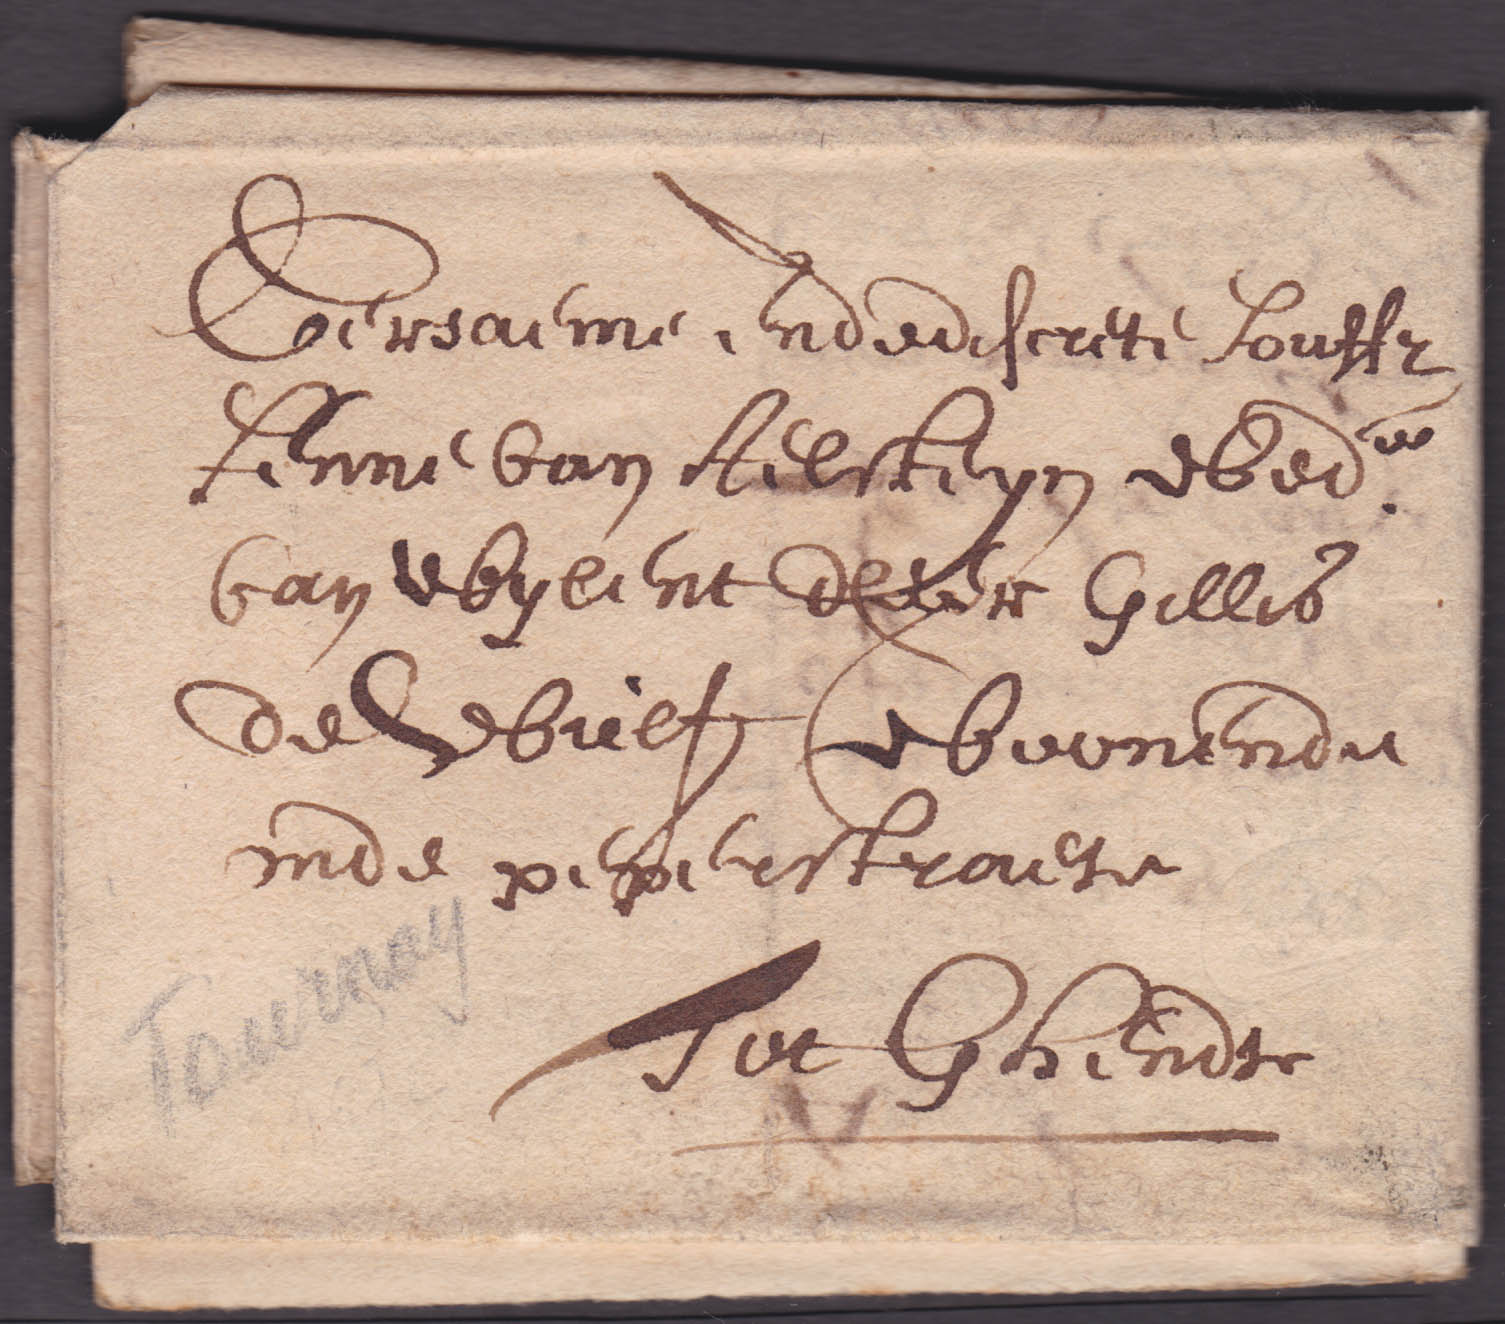 Eersaeme ende discrete Jouffr
Jenne van Aelsteyn wed.we
van wylent dheer Gillis
de Wulf woonende
inde peperstraete
Tot Ghendt
Tournay